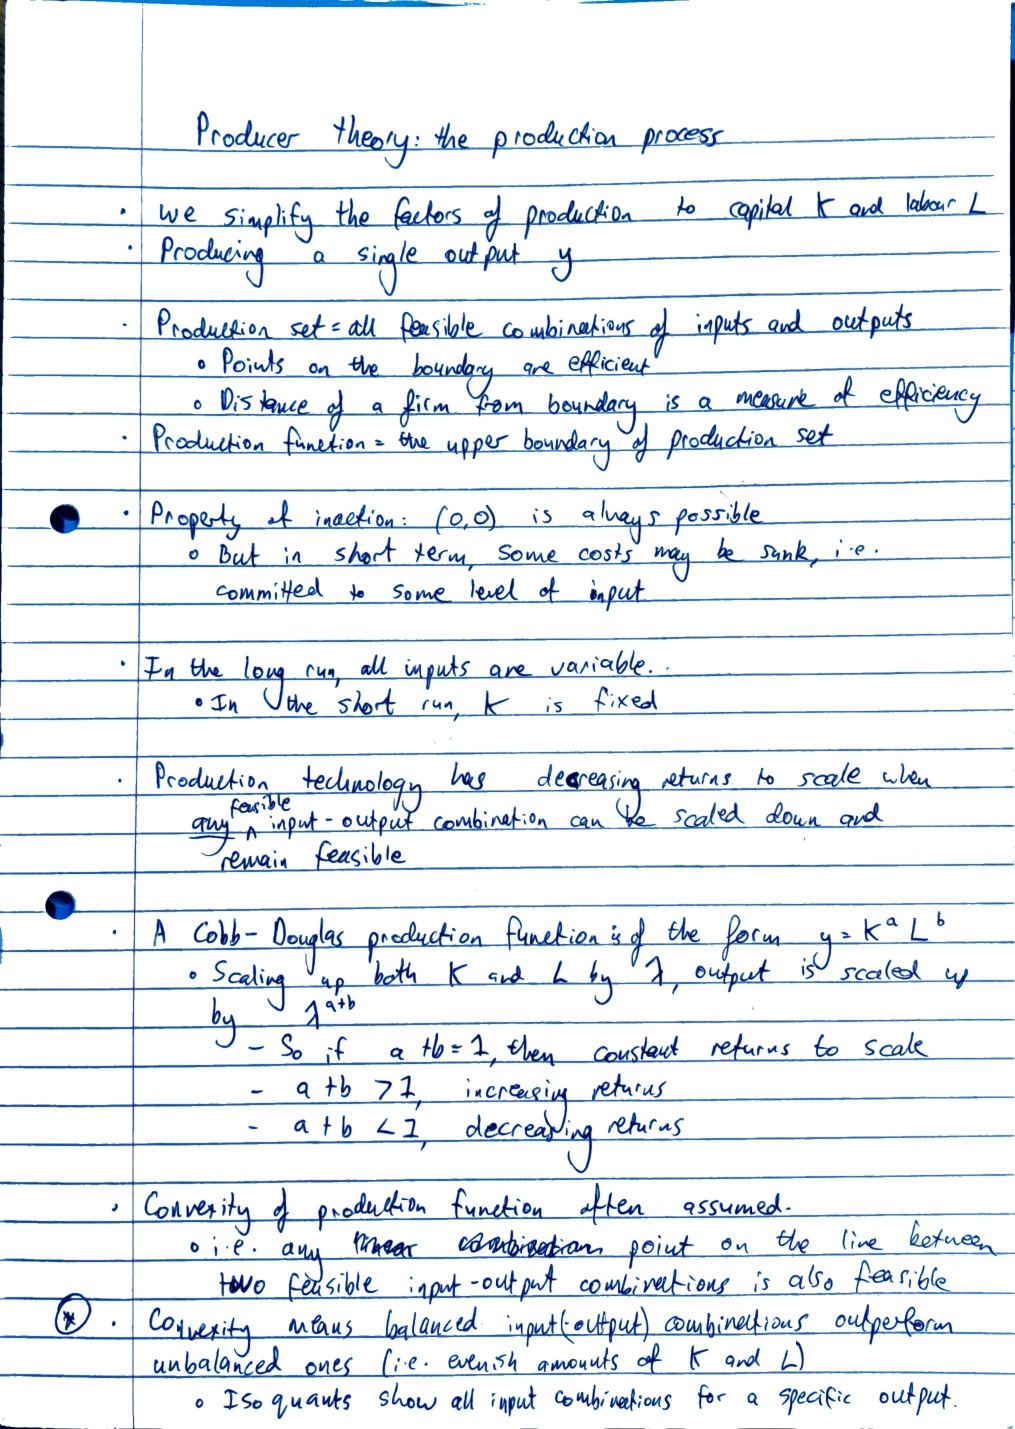 Producer theory: the production process
· We simplify the factors of production to capital K and labour L
· Producing a single output y
· Production set = all feasible combinations of inputs and outputs
∘ Points on the boundary are efficient
∘ Distance of a firm from boundary is a measure of efficiency
· Production function = the upper boundary of production set
· Property of inaction: (0,0) is always possible
∘ But in short term, some costs may be sunk, i.e.
committed to some level of input
· In the long run, all inputs are variable.
∘ In the short run, K is fixed
· Production technology has decreasing returns to scale when
any feasible input-output combination can be scaled down and
remain feasible
· A Cobb-Douglas production function is of the form y = K^a L^b
∘ Scaling up both K and L by λ, output is scaled up
by λ^a+b
- So if a+b=1, then constant returns to scale
- a+b >1, increasing returns
- a+b <1, decreasing returns
· Convexity of production function often assumed.
∘ i.e. any linear combination point on the line between
two feasible input-output combinations is also feasible
* · Convexity means balanced input(-output) combinations outperform
unbalanced ones (i.e. evenish amounts of K and L)
∘ Isoquants show all input combinations for a specific output.